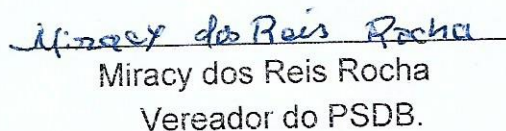 Miracy dos Reis Rocha
Miracy dos Reis Rocha
Vereador do PSDB.